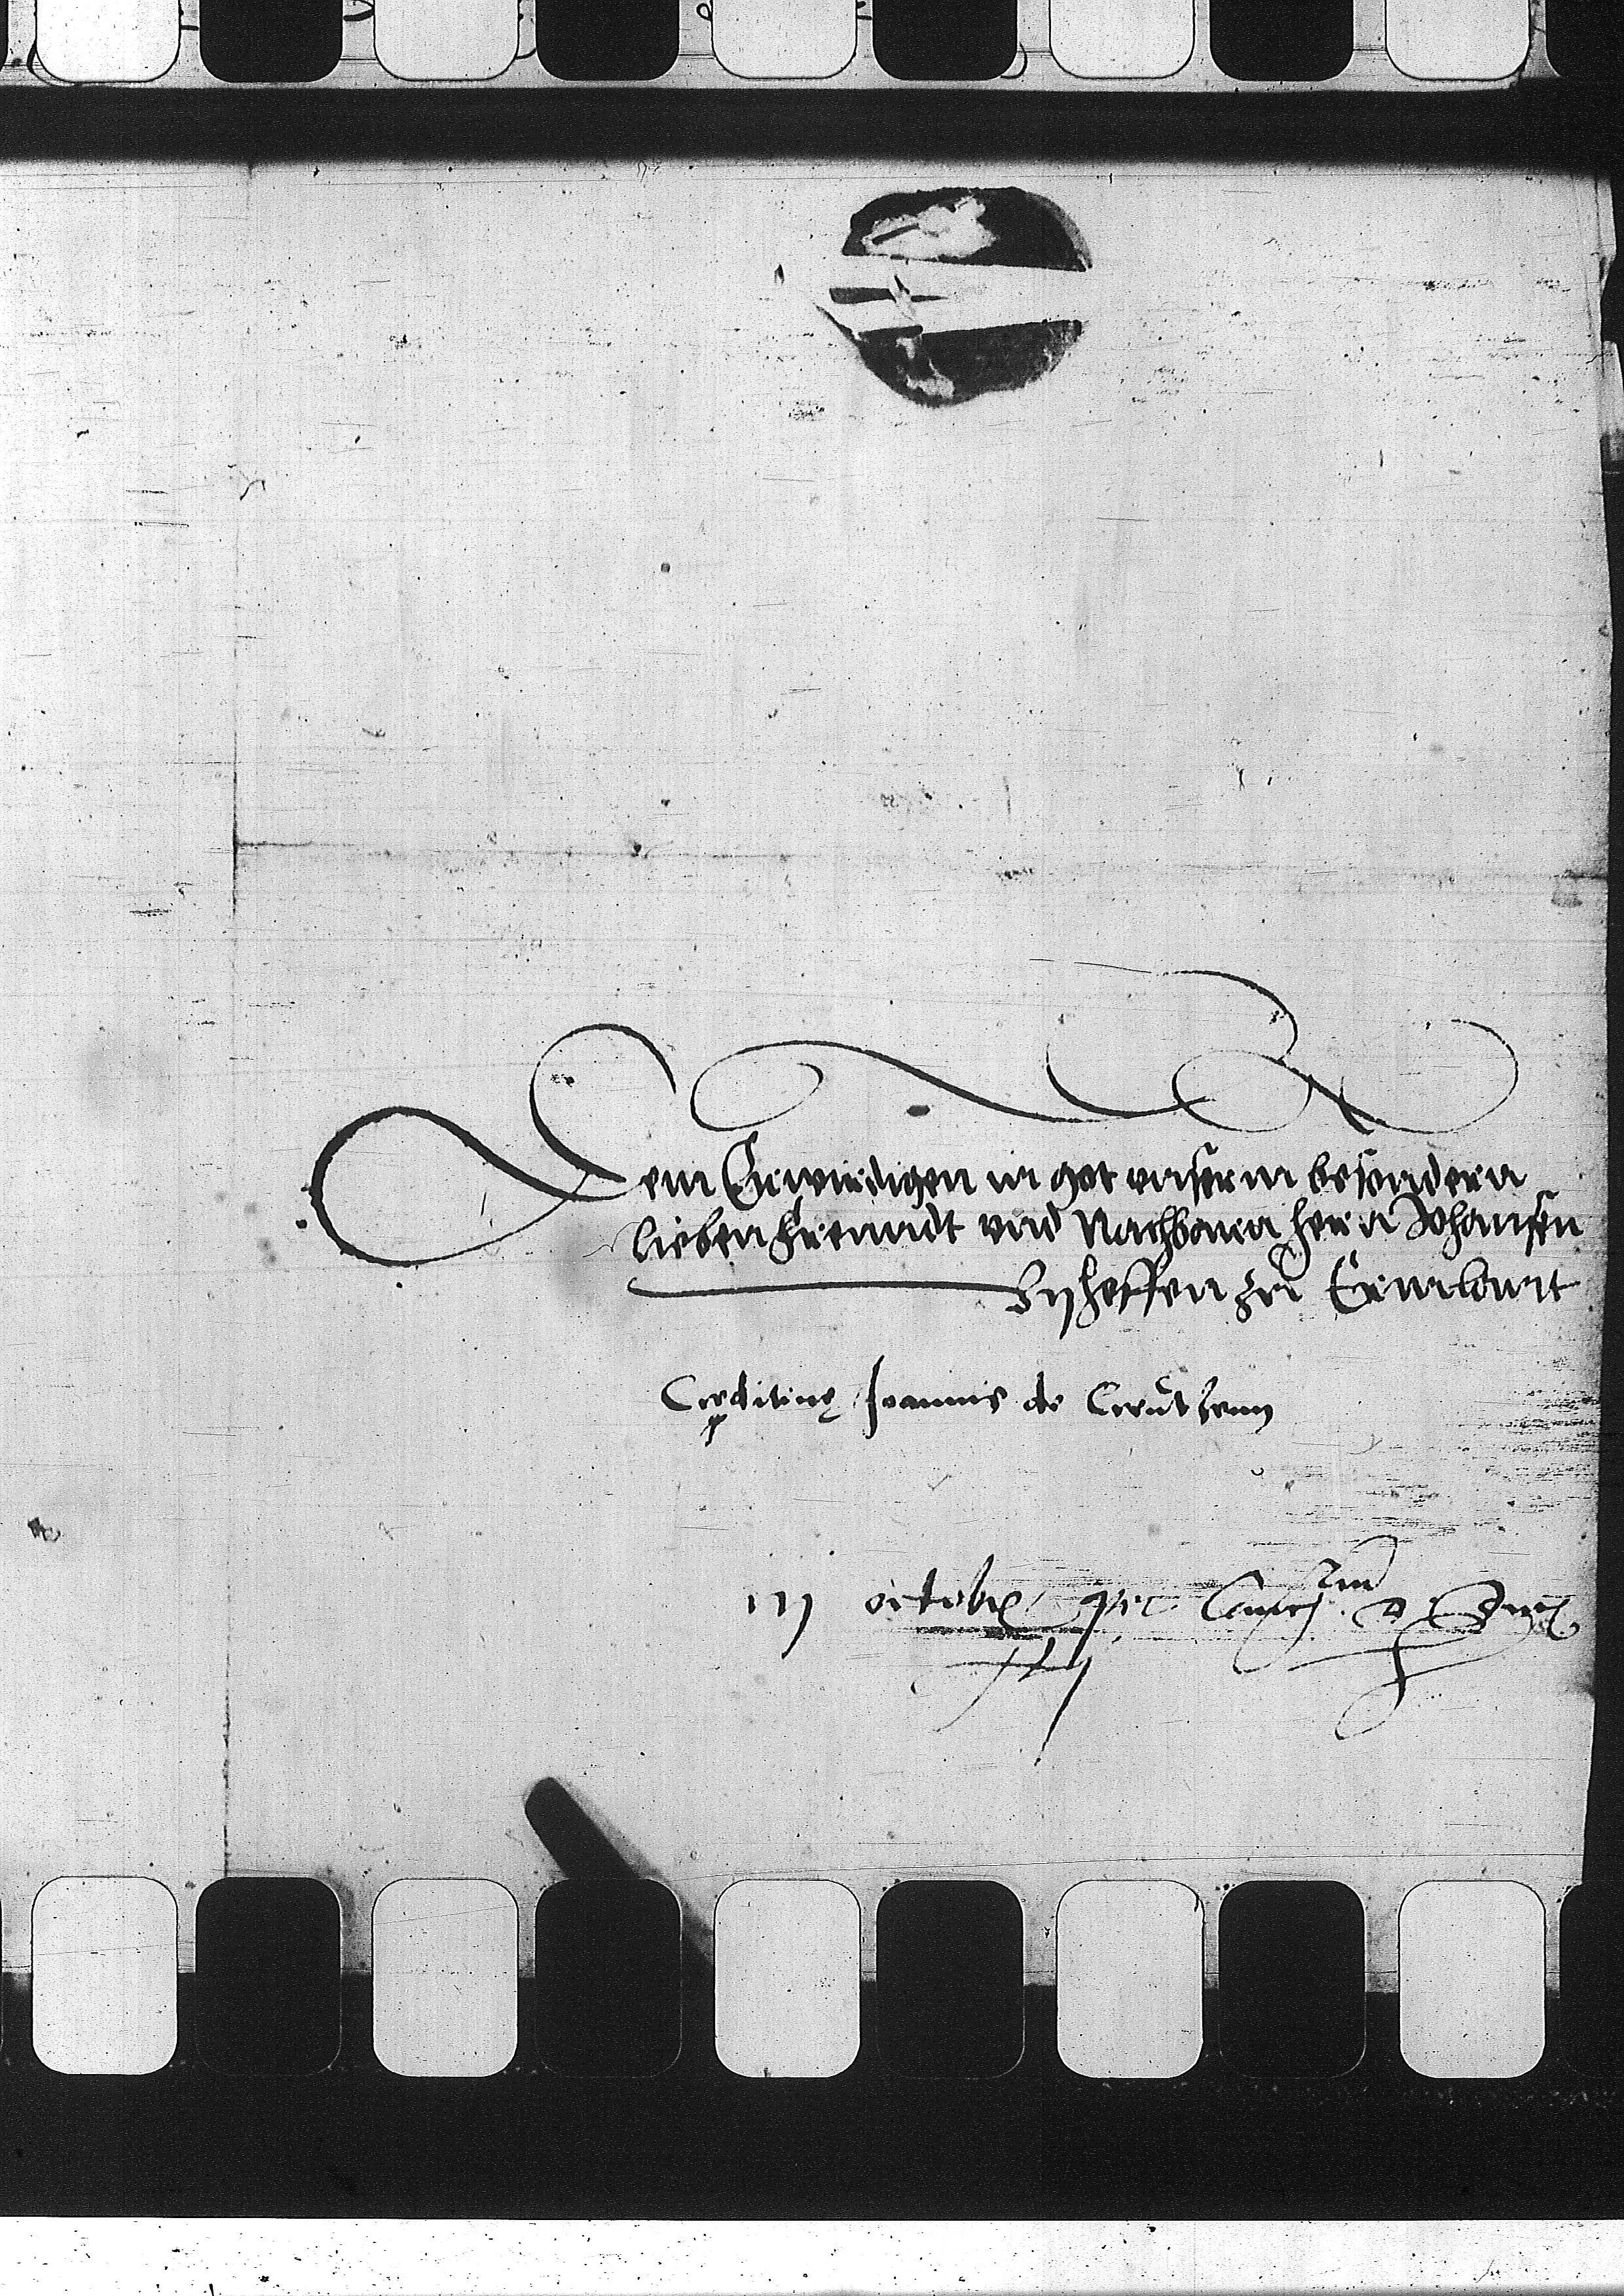 Dem Erwirdigen in got vnserm besondern
lieben freundt vnd Nachbaurn herrn Johansen
Byschoffen zu Ermlandt
Creditiuę Joannis de Creutzenn
iij octobr